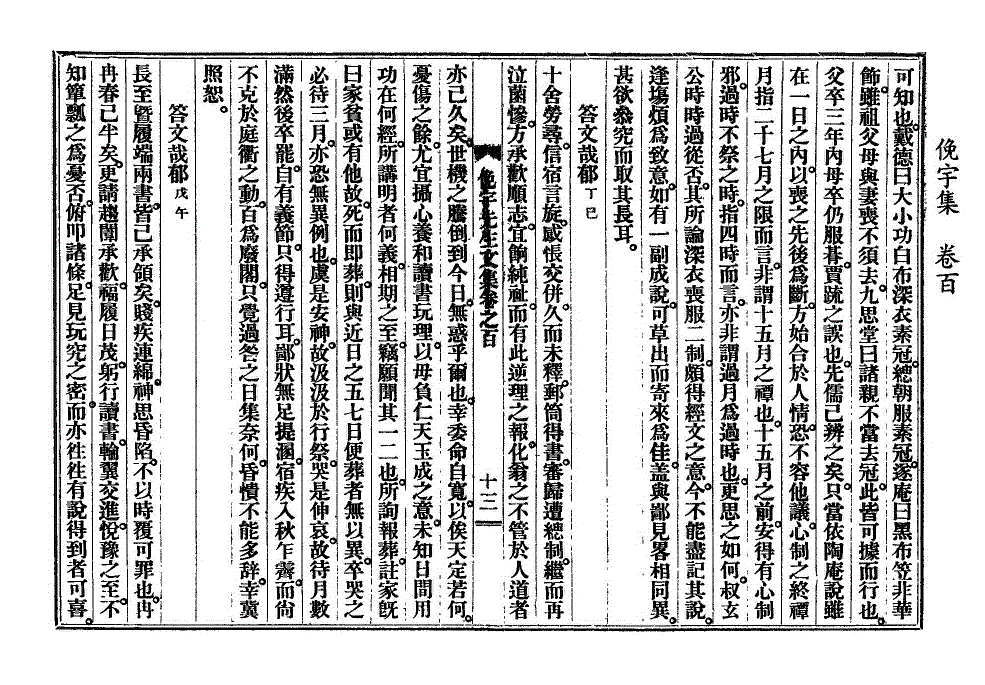 俛宇集 卷百
可知也。戴德曰大小功白布深衣素冠。總朝服素冠。遂庵曰黑布笠非華
飾。雖祖父母與妻喪不須去。九思堂曰諸親不當去冠。此皆可據而行也。
父卒三年內母卒仍服朞。賈疏之誤也。先儒已辨之矣。只當依陶庵說。雖
在一日之內。以喪之先後爲斷。方始合於人情。恐不容他議。心制之終禫
月。指二十七月之限而言。非謂十五月之禫也。十五月之前。安得有心制
邪。過時不祭之時。指四時而言。亦非謂過月爲過時也。更思之如何。叔玄
公時時過從否。其所論深衣喪服二制。頗得經文之意。今不能盡記其說。
逢塲煩爲致意。如有一副成說。可草出而寄來爲佳。盖與鄙見畧相同異。
甚欲叅究而取其長耳。
答文哉郁 丁巳
十舍勞尋。信宿言旋。感悵交倂。久而未釋。郵筒得書。審歸遭緦制。繼而再
泣菌慘。方承歡順志。宜餉純祉。而有此逆理之報。化翁之不管於人道者
俛宇先生文集卷之百
十三
亦已久矣。世機之騰倒到今日。無惑乎爾也。幸委命自寬。以俟天定若何。
憂傷之餘。尤宜攝心養和。讀書玩理。以毋負仁天玉成之意。未知日間用
功在何經。所講明者何義。相期之至。竊願聞其一二也。所詢報葬。註家旣
曰家貧或有他故。死而卽葬。則與近日之五七日便葬者無以異。卒哭之
必待三月。亦恐無異例也。虞是安神。故汲汲於行祭。哭是伸哀。故待月數
滿然後卒罷。自有義節。只得遵行耳。鄙狀無足提溷。宿疾入秋乍霽。而尙
不克於庭衢之動。百爲廢閣。只覺過咎之日集奈何。昏憒不能多辭。幸冀
照恕。
答文哉郁 戊午
長至曁履端兩書。皆已承領矣。賤疾連綿。神思昏陷。不以時覆可罪也。冉
冉春已半矣。更請趨闈承歡。福履日茂。躬行讀書。輪翼交進。悅豫之至。不
知簞瓢之爲憂否。俯叩諸條。足見玩究之密。而亦徃徃有說得到者可喜。